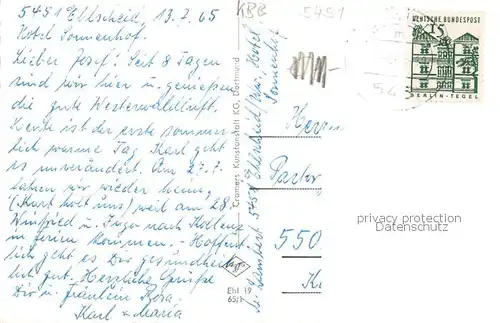 5451 Ehlscheid, 13.7.65
Hotel Sonnenhof.
Lieber Josef! Seit 8 Tagen
sind wir hier u. genießen
die gute Westerwaldluft.
Heute ist der erste sommer-
lich warme Tag. Karl geht
es unverändert. Am 27.7.
fahren wir wieder heim,
(Kurt holt uns) weil am 28.
Winfried u. Ingo nach Koblenz
in Ferien kommen. - Hoffent-
lich geht es Dir gesundheit-
lich gut. Herzliche Grüße
Dir u. Fräulein Rosa
Karl + Maria
Cramers Kunstanstalt KG, Dortmund
Ehl 19
65/1
5451 Ehlscheid/Hotel
Sonnenhof
KBB
5451
DEUTSCHE BUNDESPOST
15
BERLIN-TEGEL
54
Herrn
Pastor
550
privacy protection
Datenschutz